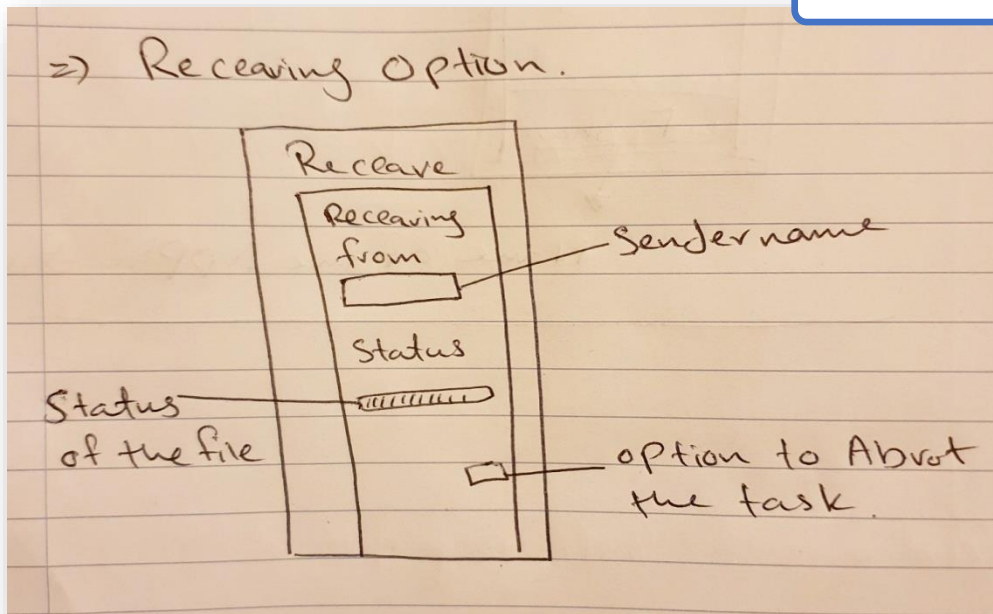 =) Receaving Option.
Receave
Receaving
from
Sender name
Status
Status
of the file
option to Abrot
the task.